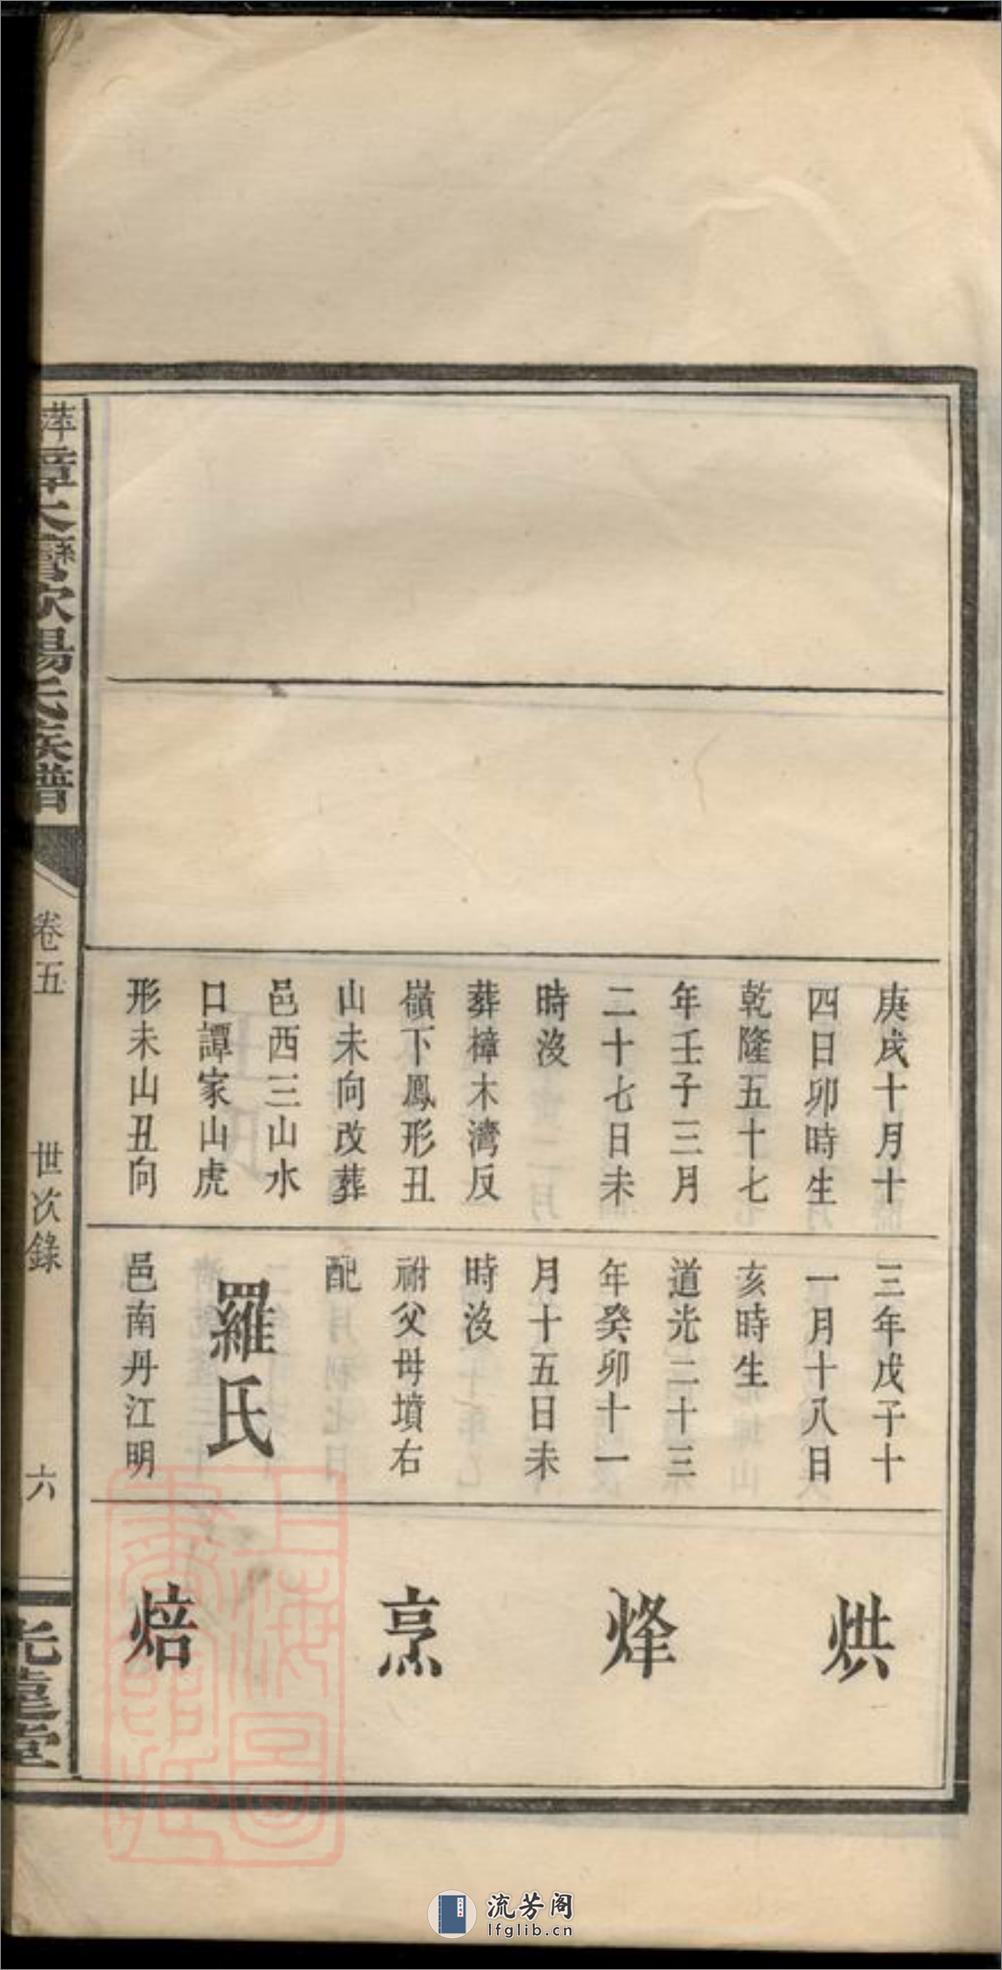 庚戌十月十
四日卯時生
乾隆五十七
年壬子三月
二十七日未
時沒
葬樟木灣反
嶺下鳳形丑
山未向改葬
邑西三山水
口譚家山虎
形未山丑向
三年戊子十
一月十八日
亥時生
道光二十三
年癸卯十一
月十五日未
時沒
祔父母墳右
配
羅氏
邑南丹江明
烘
烽
烹
焙
萍漳大灣歐陽氏族譜
卷五
世次錄
六
上海圖
書館藏
流芳阁
lfglib.cn